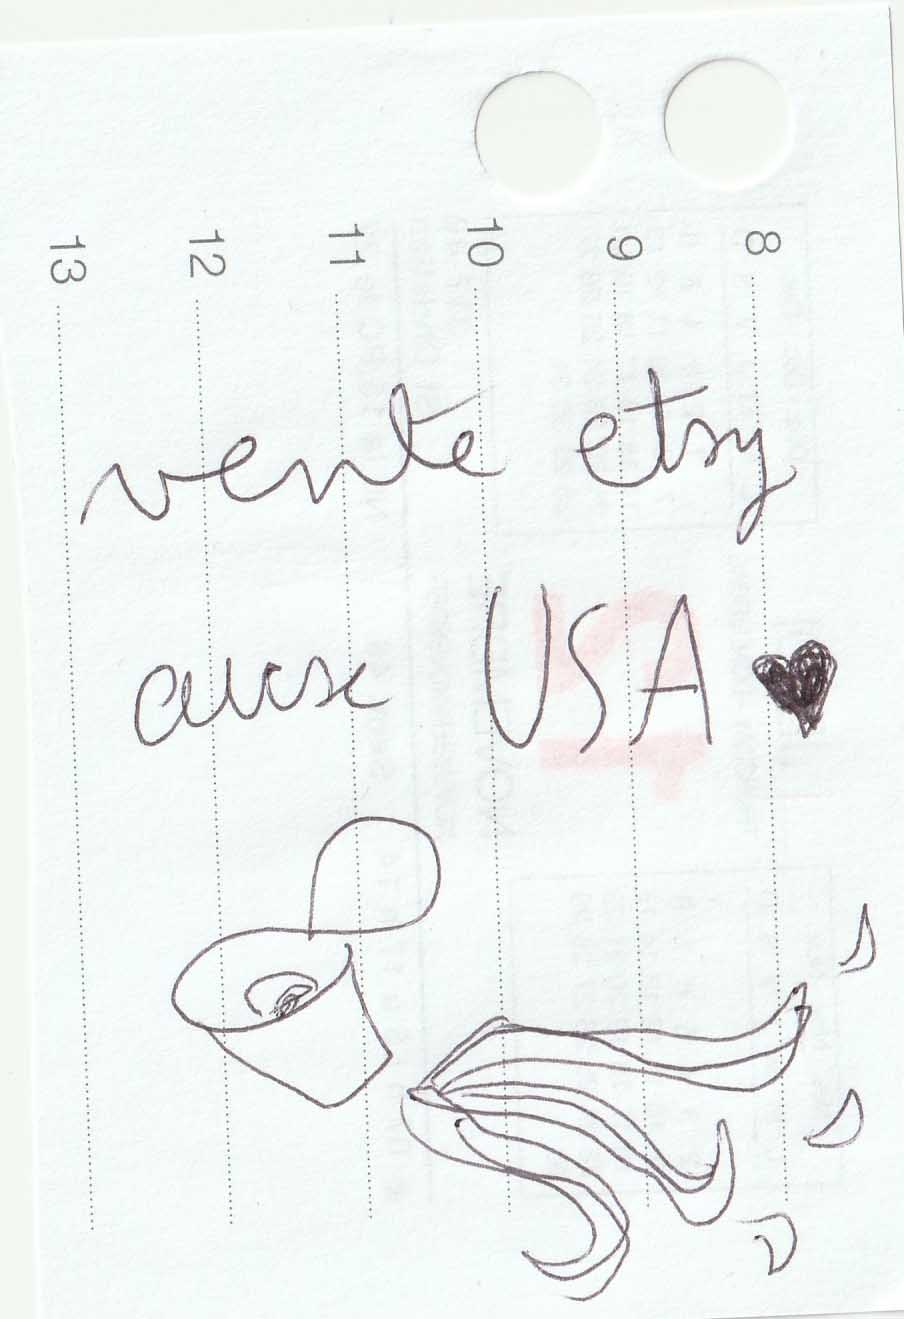 8
9
10
11
12
13
vente etsy
aux USA ♥